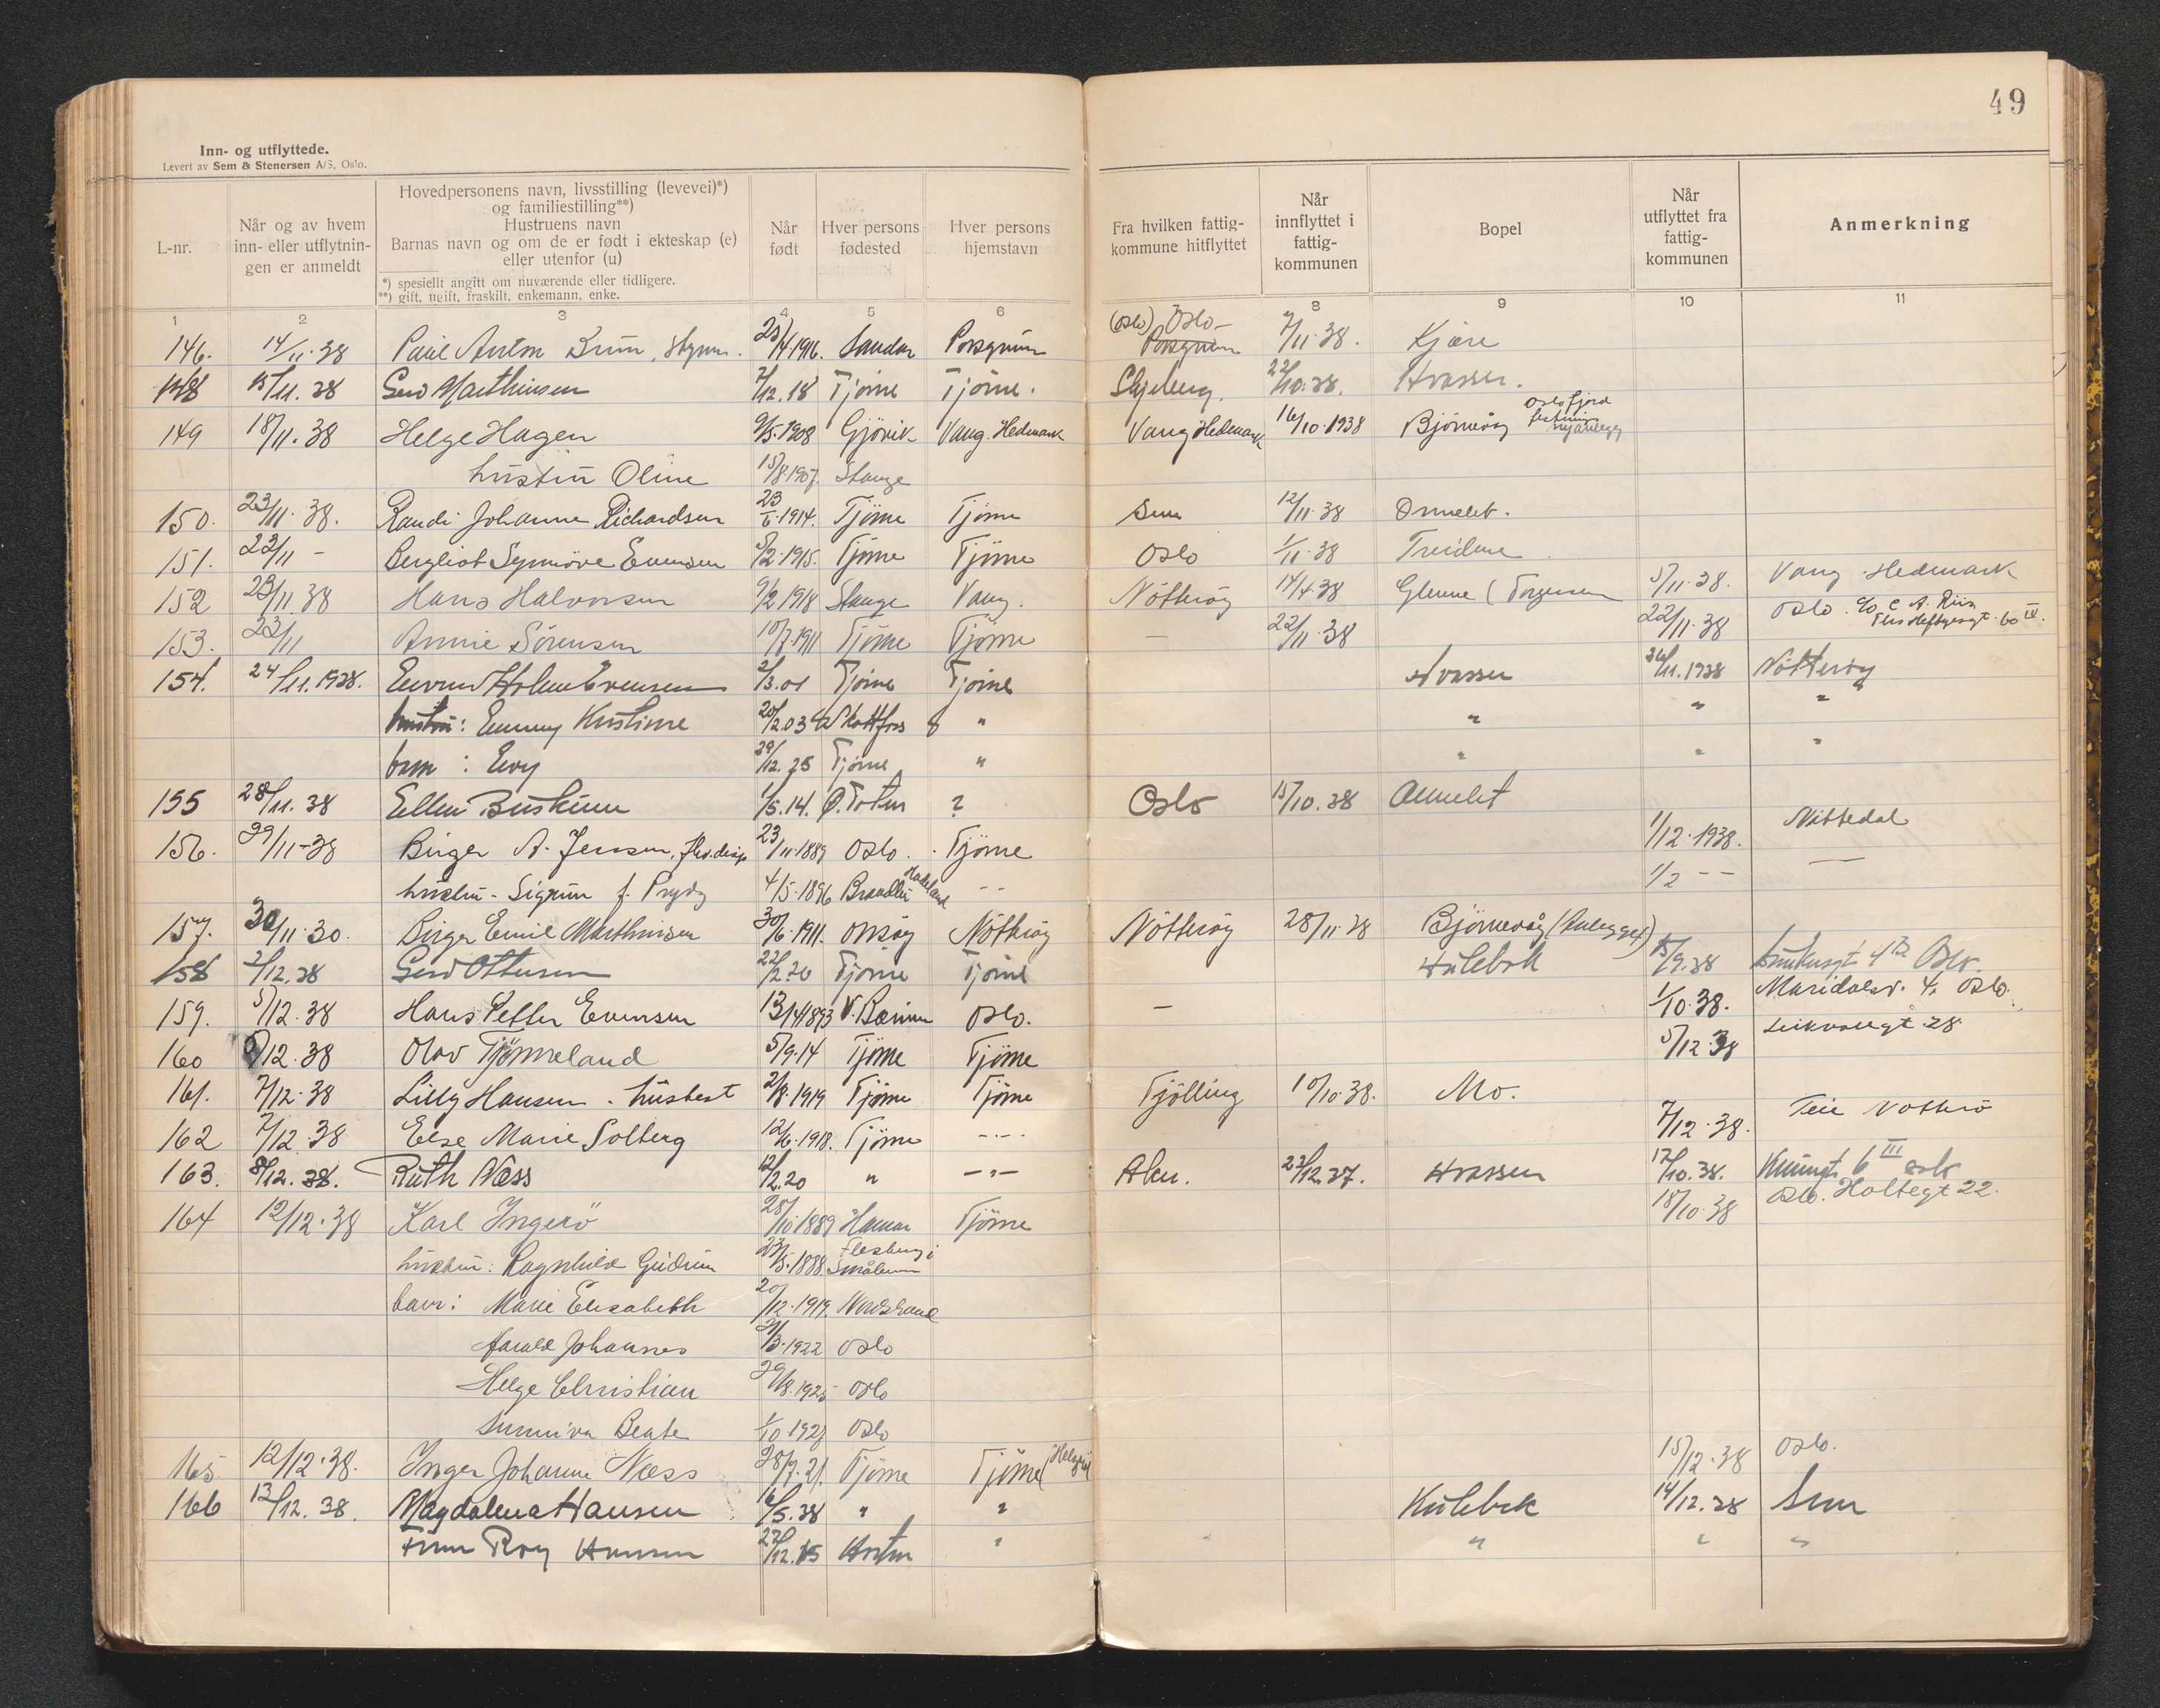 49
Inn- og utflyttede.
Levert av Sem & Stenersen A/S, Oslo.
L-nr.
Når og av hvem inn- eller utflytnin- gen er anmeldt
Hovedpersonens navn, livsstilling (levevei)*)
og familiestilling**)
Hustruens navn
Barnas navn og om de er født i ekteskap (e)
eller utenfor (u)
*) spesiellt angitt om nuværende eller tidligere.
**) gift, ugift, fraskilt, enkemann, enke.
Når født
Hver persons fødested
Hver persons hjemstavn
Fra hvilken fattig- kommune hitflyttet
Når innflyttet i fattig- kommunen
Bopel
Når utflyttet fra fattig- kommunen
Anmerkning
1 2 3 4 5 6 8 9 10 11
146. 14/11.38 Paul Anton Brun, Styrm. 25/4.1916. Sandar Porsgrunn (Oslo) Oslo- Porsgrunn 7/11.38. Kjære
148 15/11.38 Gerd Marthinsen 7/12.18 Tjöme Tjöme. Skjeberg. 22/10.38. Hvasser.
149 18/11.38 Helge Hagen 9/5.1908 Gjövik Vang. Hedmark Vang Hedmark 16/10.1938 Björnevåg Oslofjord
hustru Oline 15/8.1907. Stange
150. 23/11.38. Randi Johanne Richardsen 23/6.1914. Tjöme Tjöme Sem 12/11.38 Ormelet.
151. 23/11 - Bergliot Synnöve Evensen 5/2.1915. Tjöme Tjöme Oslo 1/11.38 Treidene.
152 23/11.38 Hans Halvorsen 9/2 1918 Stange Vang. Nötteröy 14/4.38 Glenne (Torgersen 5/11.38. Vang Hedmark
153. 23/11 Annie Sörensen 10/7.1911 Tjöme Tjöme — 22/11.38 22/11.38 Oslo. c/o C. A. Riis Ths Heftyesgt. 60 IV.
154. 24/11.1938. Holm Evensen 2/3.01 Tjöme Tjöme Hvasser 26/11.1938 Nötteröy
hustru: Emmy Kristine 20/2.03 Skotfoss " " " "
barn: Evy 29/12.25 Tjöme " " " "
155 28/11.38 Ellen Buskerun 1/5.14. Ø. Toten ? Oslo 15/10.38 Ormelet
156. 29/11-38 Birger A. Jensen, 23/11.1889 Oslo. Tjöme 1/12.1938. Nittedal
hustru - Sigrun f. Prydz 4/5.1896 Brandbu Hadeland -- 1/2 -- —
157. 30/11.30. Birger Emil Marthinsen 30/6.1911. Onsöy Nötteröy Nötteröy 28/11.38 Björnevåg (Anlegget)
158 2/12.38 Gerd Ottersen 22/2.20 Tjöme Tjöme Kulebek 15/9.38 Oslo.
159. 5/12.38 Hans Petter Evensen 13/4 1893 V. Bærum Oslo. — 1/10.38. Maridalsv. 4. Oslo.
160 5/12.38 Olav Tjönneland 5/9.14 Tjöme Tjöme 5/12.38 28
161. 7/12.38 Lilly Hansen. husbest 2/8.1919 Tjöme Tjöme Tjölling 10/10.38. Mo.
162 7/12.38 Else Marie Solberg 12/6.1918. Tjöme -.-. 7/12.38. Teie Nötterö
163. 8/12.38. Ruth Næss 12/2.20 " -"- Aker. 23/12.37. Hvasser 17/10.38. 6 III Oslo
164 12/12.38 Karl Ingerö 28/10.1889 Hamar Tjöme 18/10.38 Oslo. Holtegt 22.
hustru: Ragnhild Gudrun 23/5.1888 i Smålenene
barn: Marie Elisabeth 20/12.1919. Nordstrand
Harald Johannes 21/3.1922 Oslo
Helge Christian 29/8.1925 Oslo
Sunniva Beate 1/10 1927 Oslo
165. 12/12.38. Inger Johanne Næss 28/7.21. Tjöme Tjöme 15/12.38 Oslo.
166 13/12.38. Magdalena Hansen 6/5.38 " " Kulebek 14/12.38 Sem
Finn Roy Hansen 22/12.15 Horten " " " "